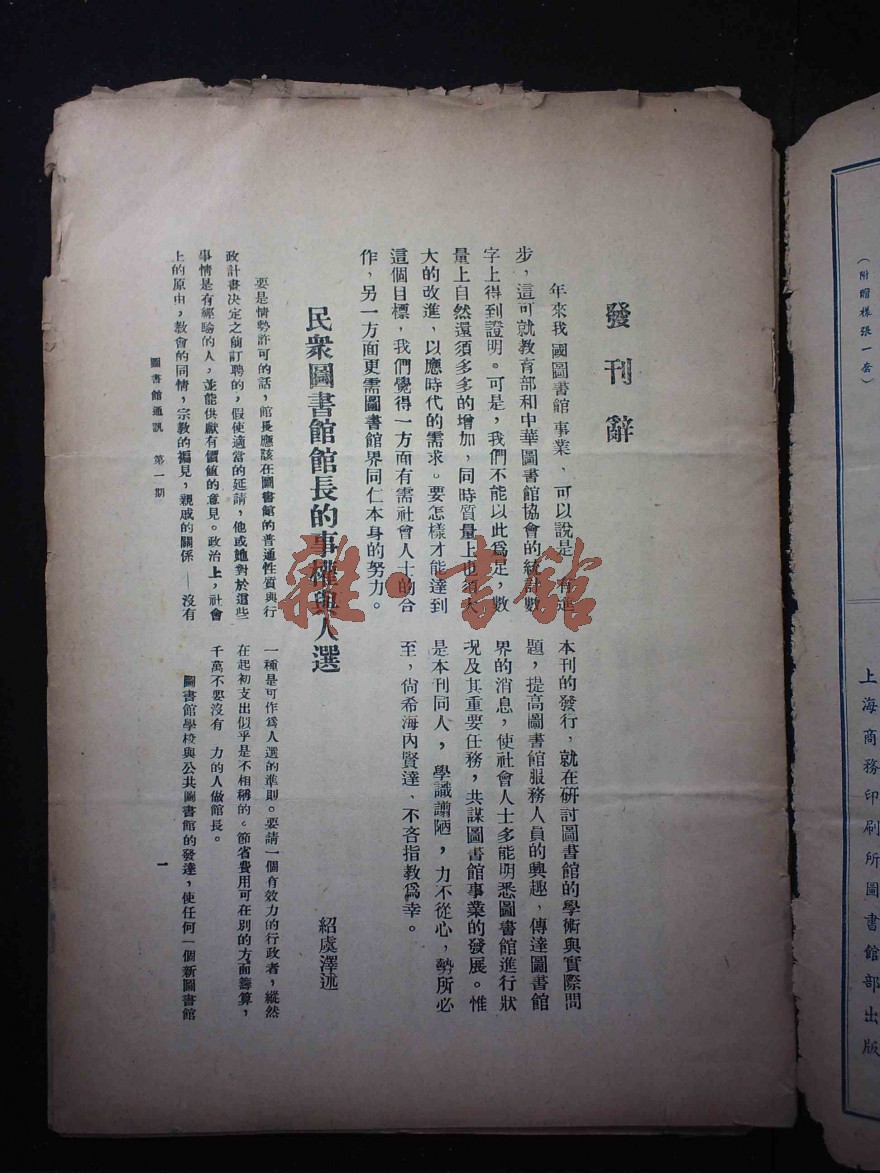 發刊辭
年來我國圖書館事業、可以說是 有進
步，這可就教育部和中華圖書館協會的統計數
字上得到證明。可是，我們不能以此爲足，數
量上自然還須多多的增加，同時質量上也須大
大的改進，以應時代的需求。要怎樣才能達到
這個目標，我們覺得一方面有需社會人士的合
作，另一方面更需圖書館界同仁本身的努力。
本刊的發行，就在研討圖書館的學術與實際問
題，提高圖書館服務人員的興趣，傳達圖書館
界的消息，使社會人士多能明悉圖書館進行狀
况及其重要任務，共謀圖書館事業的發展。惟
是本刊同人，學識譾陋，力不從心，勢所必
至，尙希海內賢達、不吝指教爲幸。
民衆圖書館館長的事權與人選
紹虞澤述
要是情勢許可的話，館長應該在圖書館的普通性質與行
政計畫决定之前訂聘的，假使適當的延請，他或她對於這些
事情是有經驗的人，並能供獻有價値的意見。政治上，社會
上的原由，教會的同情，宗教的褊見，親戚的關係——沒有
一種是可作爲人選的準則。要請一個有效力的行政者，縱然
在起初支出似乎是不相稱的。節省費用可在別的方面籌算，
千萬不要沒有 力的人做館長。
圖書館學校與公共圖書館的發達，使任何一個新圖書館
圖書館通訊 第一期
一
雜·書館
（附贈樣張一套）
上海商務印刷所圖書館部出版